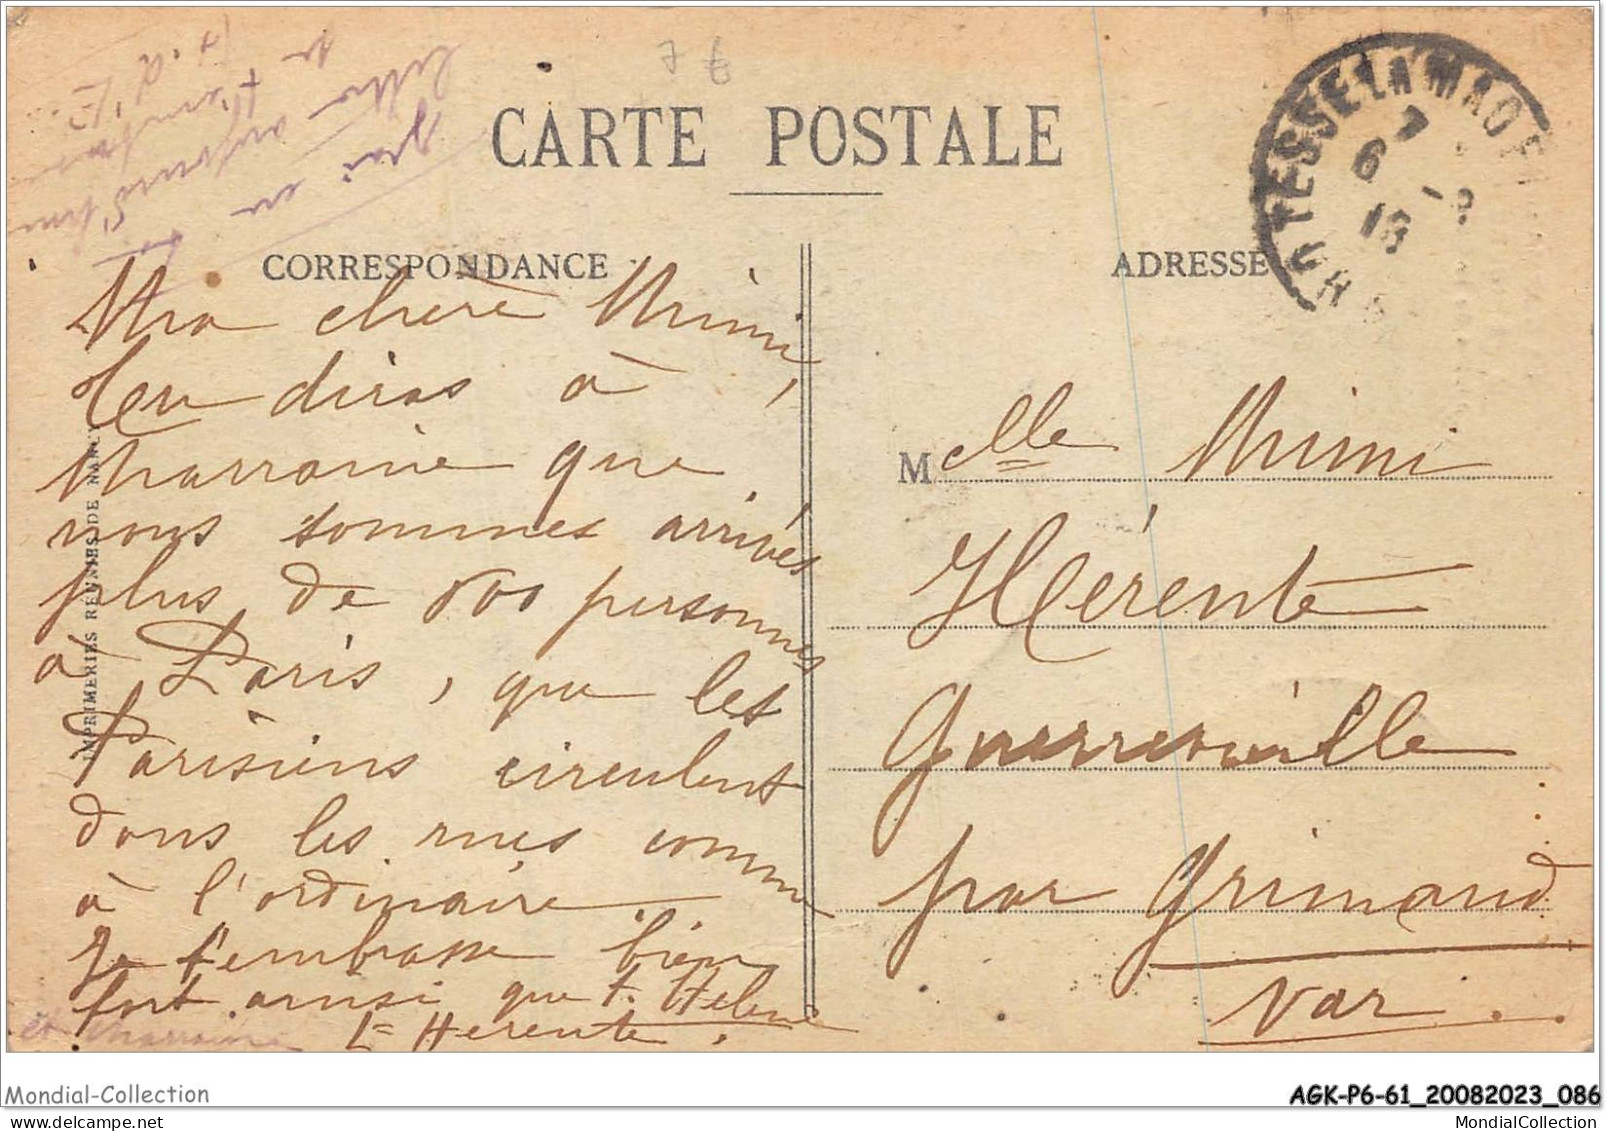 CARTE POSTALE
CORRESPONDANCE
ADRESSE
Ma chère Mimi,
Tu diras à
Marraine que
nous sommes arrivés
plus de 800 personnes
à Paris, que les
Parisiens circulent
dans les rues comme
à l'ordinaire
Je t'embrasse bien
fort ainsi que t. Hélène
et Marraine L Herente.
M elle Mimi
Hérenté
Guerrevieille
par Grimaud
Var.
LA FERTE-MACE
7
6 -8
IMPRIMERIES RÉUNIES DE NANCY
Mondial-Collection
AGK-P6-61_20082023_086
MondialCollection